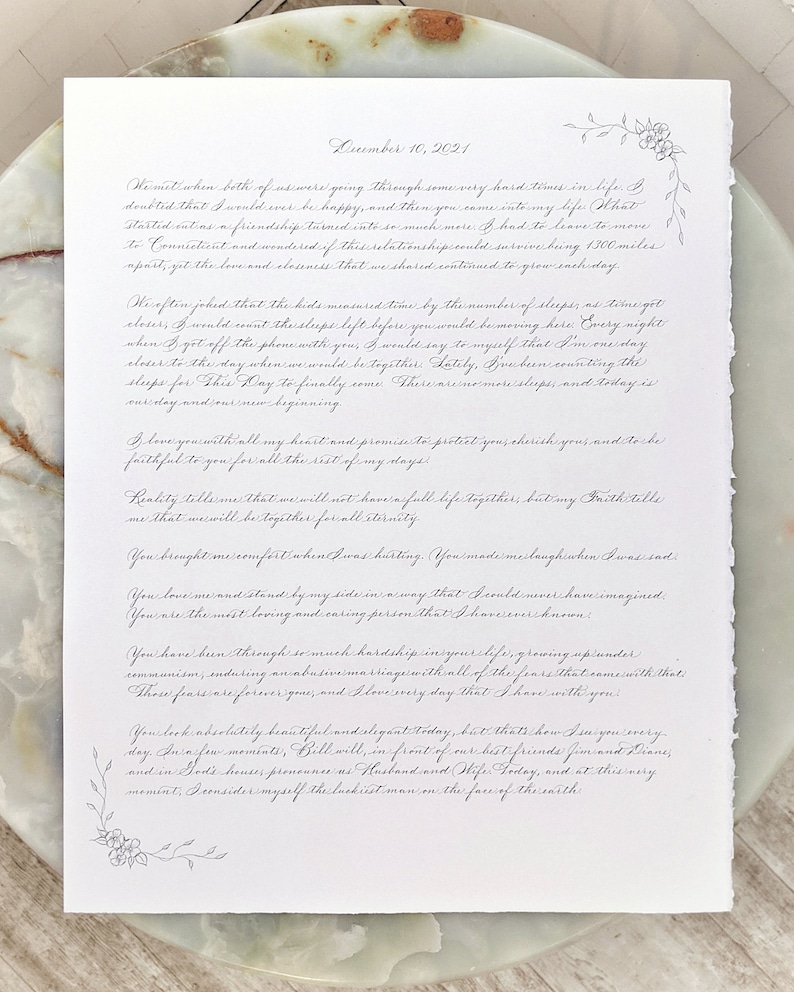 December 10, 2021
We met when both of us were going through some very hard times in life. I
doubted that I would ever be happy, and then you came into my life. What
started out as a friendship turned into so much more. I had to leave to move
to Connecticut and wondered if this relationship could survive being 1300 miles
apart, yet the love and closeness that we shared continued to grow each day.
We often joked that the kids measured time by the number of sleeps; as time got
closer, I would count the sleeps left before you would be moving here. Every night
when I got off the phone with you, I would say to myself that I'm one day
closer to the day when we would be together. Lately, I've been counting the
sleeps for This Day to finally come. There are no more sleeps, and today is
our day and our new beginning.
I love you with all my heart and promise to protect you, cherish you, and to be
faithful to you for all the rest of my days.
Reality tells me that we will not have a full life together, but my Faith tells
me that we will be together for all eternity.
You brought me comfort when I was hurting. You made me laugh when I was sad.
You love me and stand by my side in a way that I could never have imagined.
You are the most loving and caring person that I have ever known.
You have been through so much hardship in your life, growing up under
communism, enduring an abusive marriage with all of the fears that came with that.
Those fears are forever gone, and I love every day that I have with you.
You look absolutely beautiful and elegant today, but that's how I see you every
day. In a few moments, Bill will, in front of our best friends Jim and Diane,
and in God's house, pronounce us Husband and Wife. Today, and at this very
moment, I consider myself the luckiest man on the face of the earth.